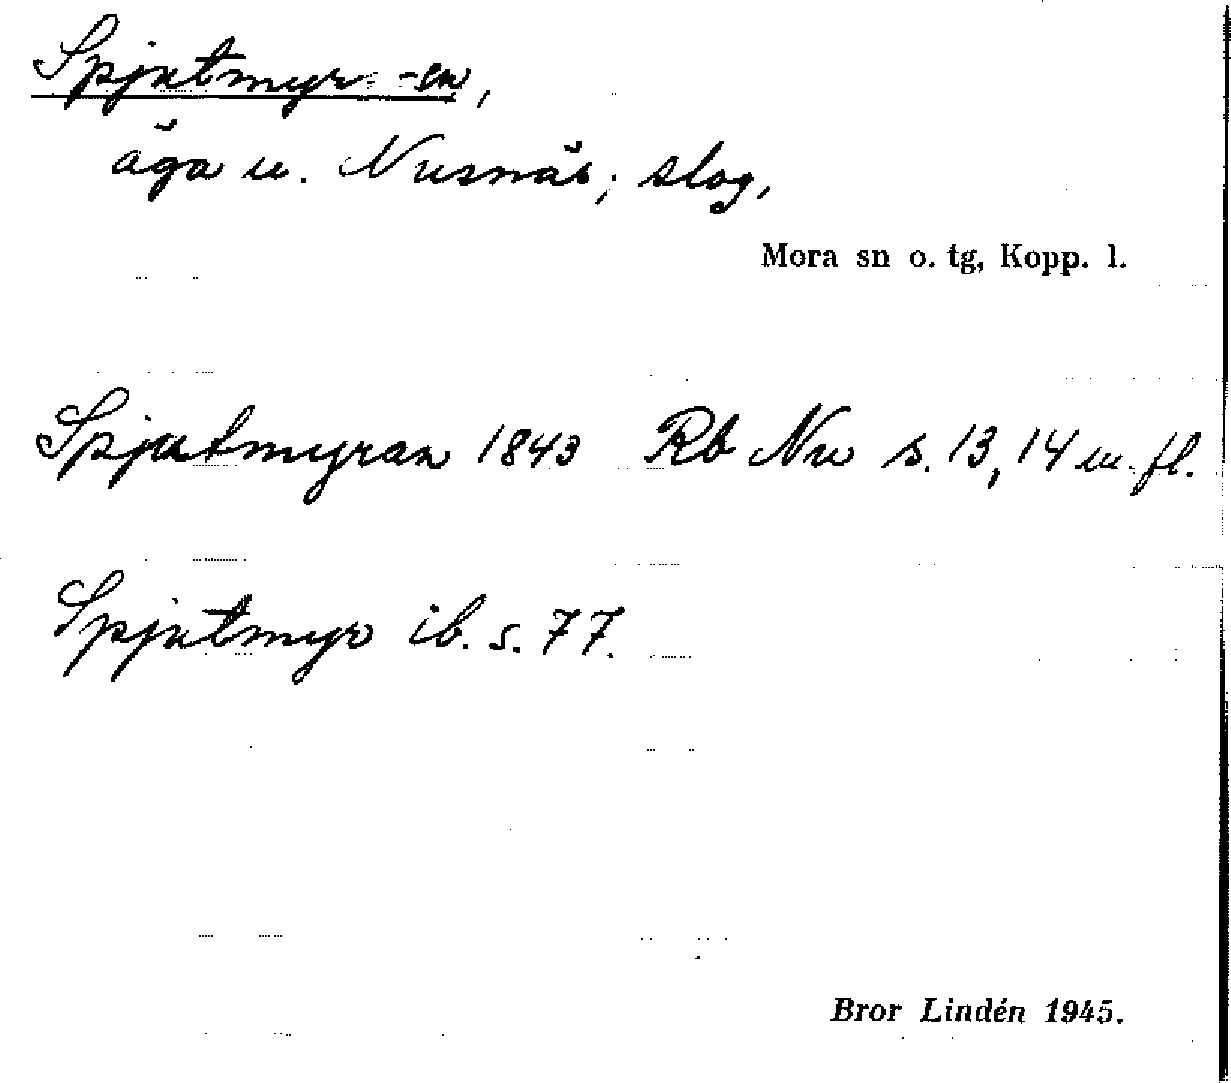 Spjutmyr -en,
äga u. Nusnäs; slog,
Mora sn o. tg, Kopp. l.
Spjutmyran 1843 Rb Nu s. 13, 14 m. fl.
Spjutmyr ib. s. 77.
Bror Lindén 1945.